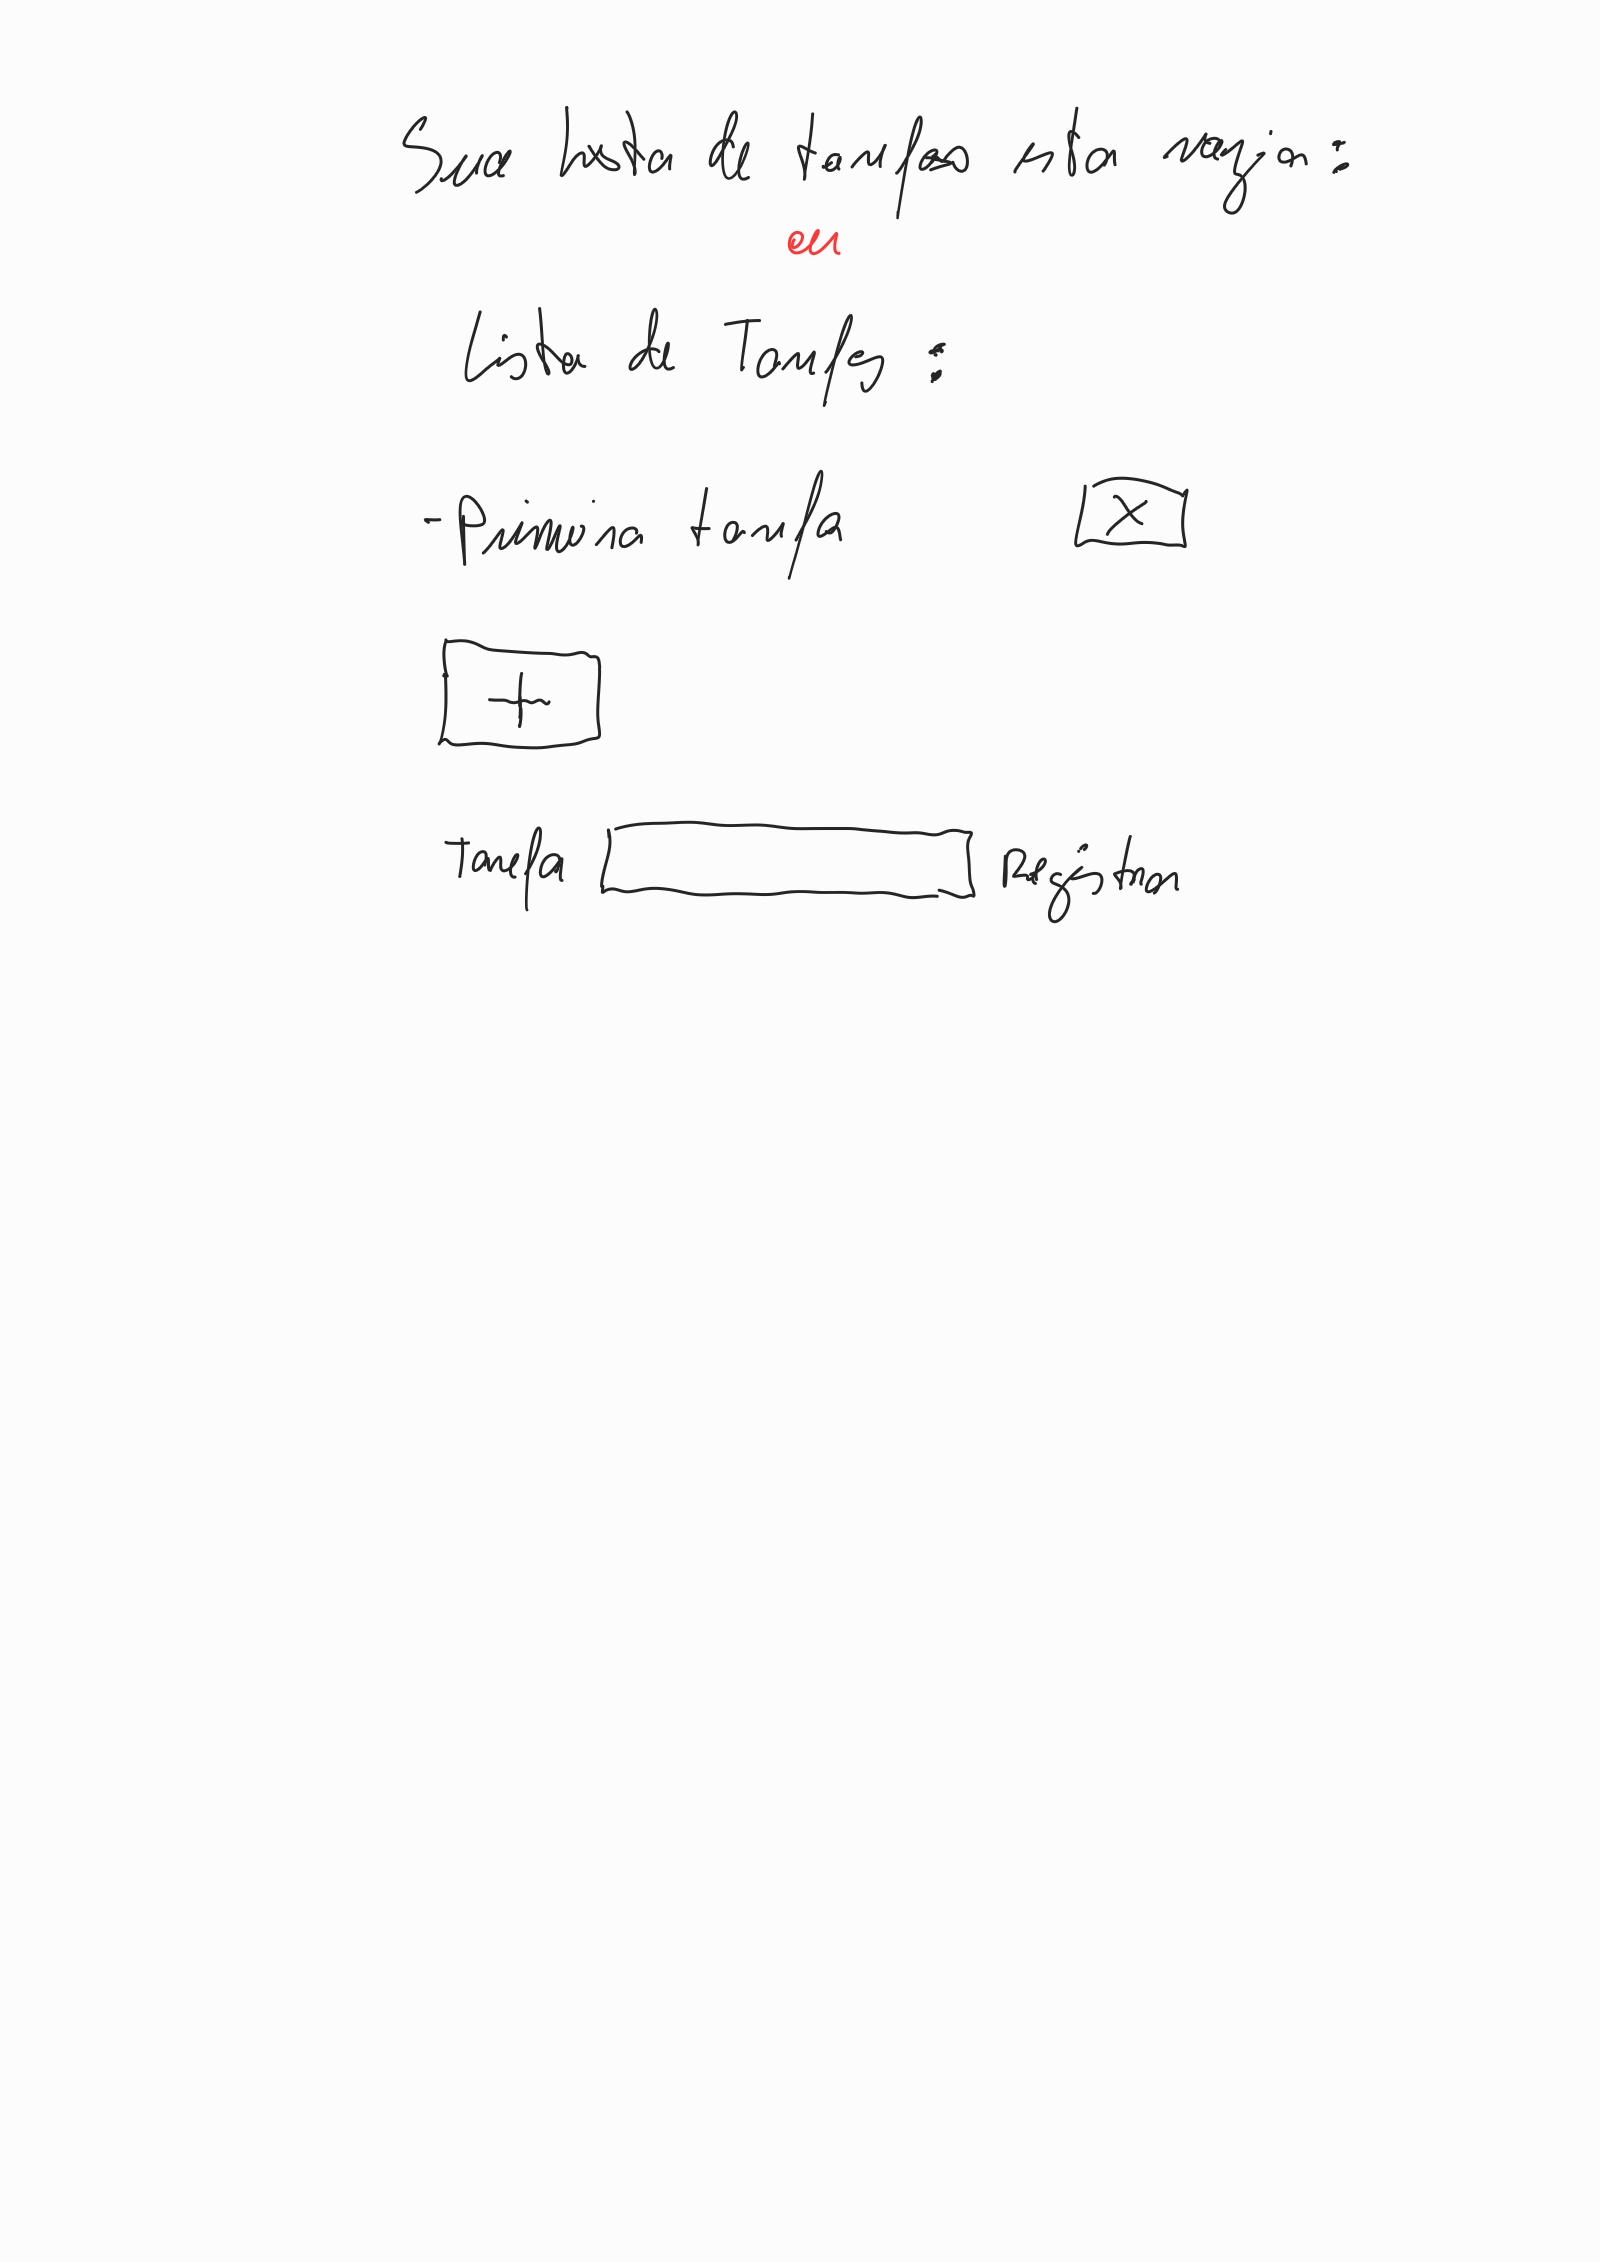 Sua lista de tarefas esta vazia:
ou
Lista de Tarefas:
- Primeira tarefa X
+
Tarefa Registrar